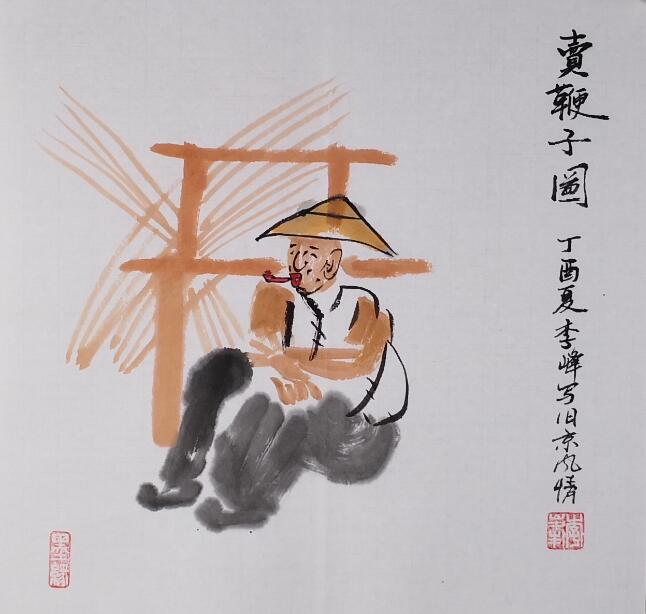 賣鞭子圖
丁酉夏李峰写旧京风情